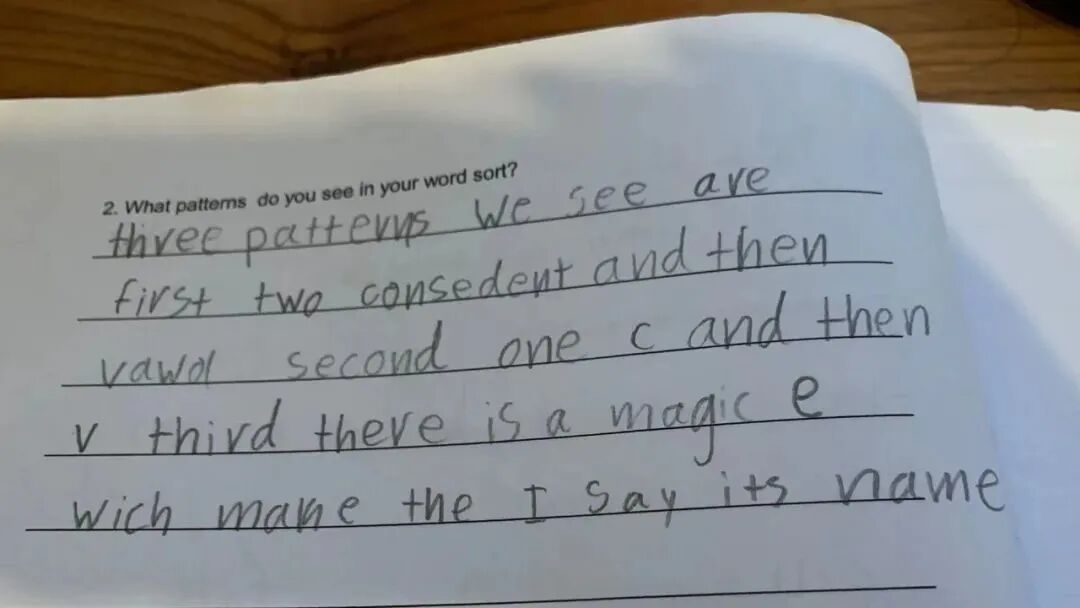 2. What patterns do you see in your word sort?
three patterns we see are
first two consedent and then
vawol second one c and then
v third there is a magic e
wich make the I say its name